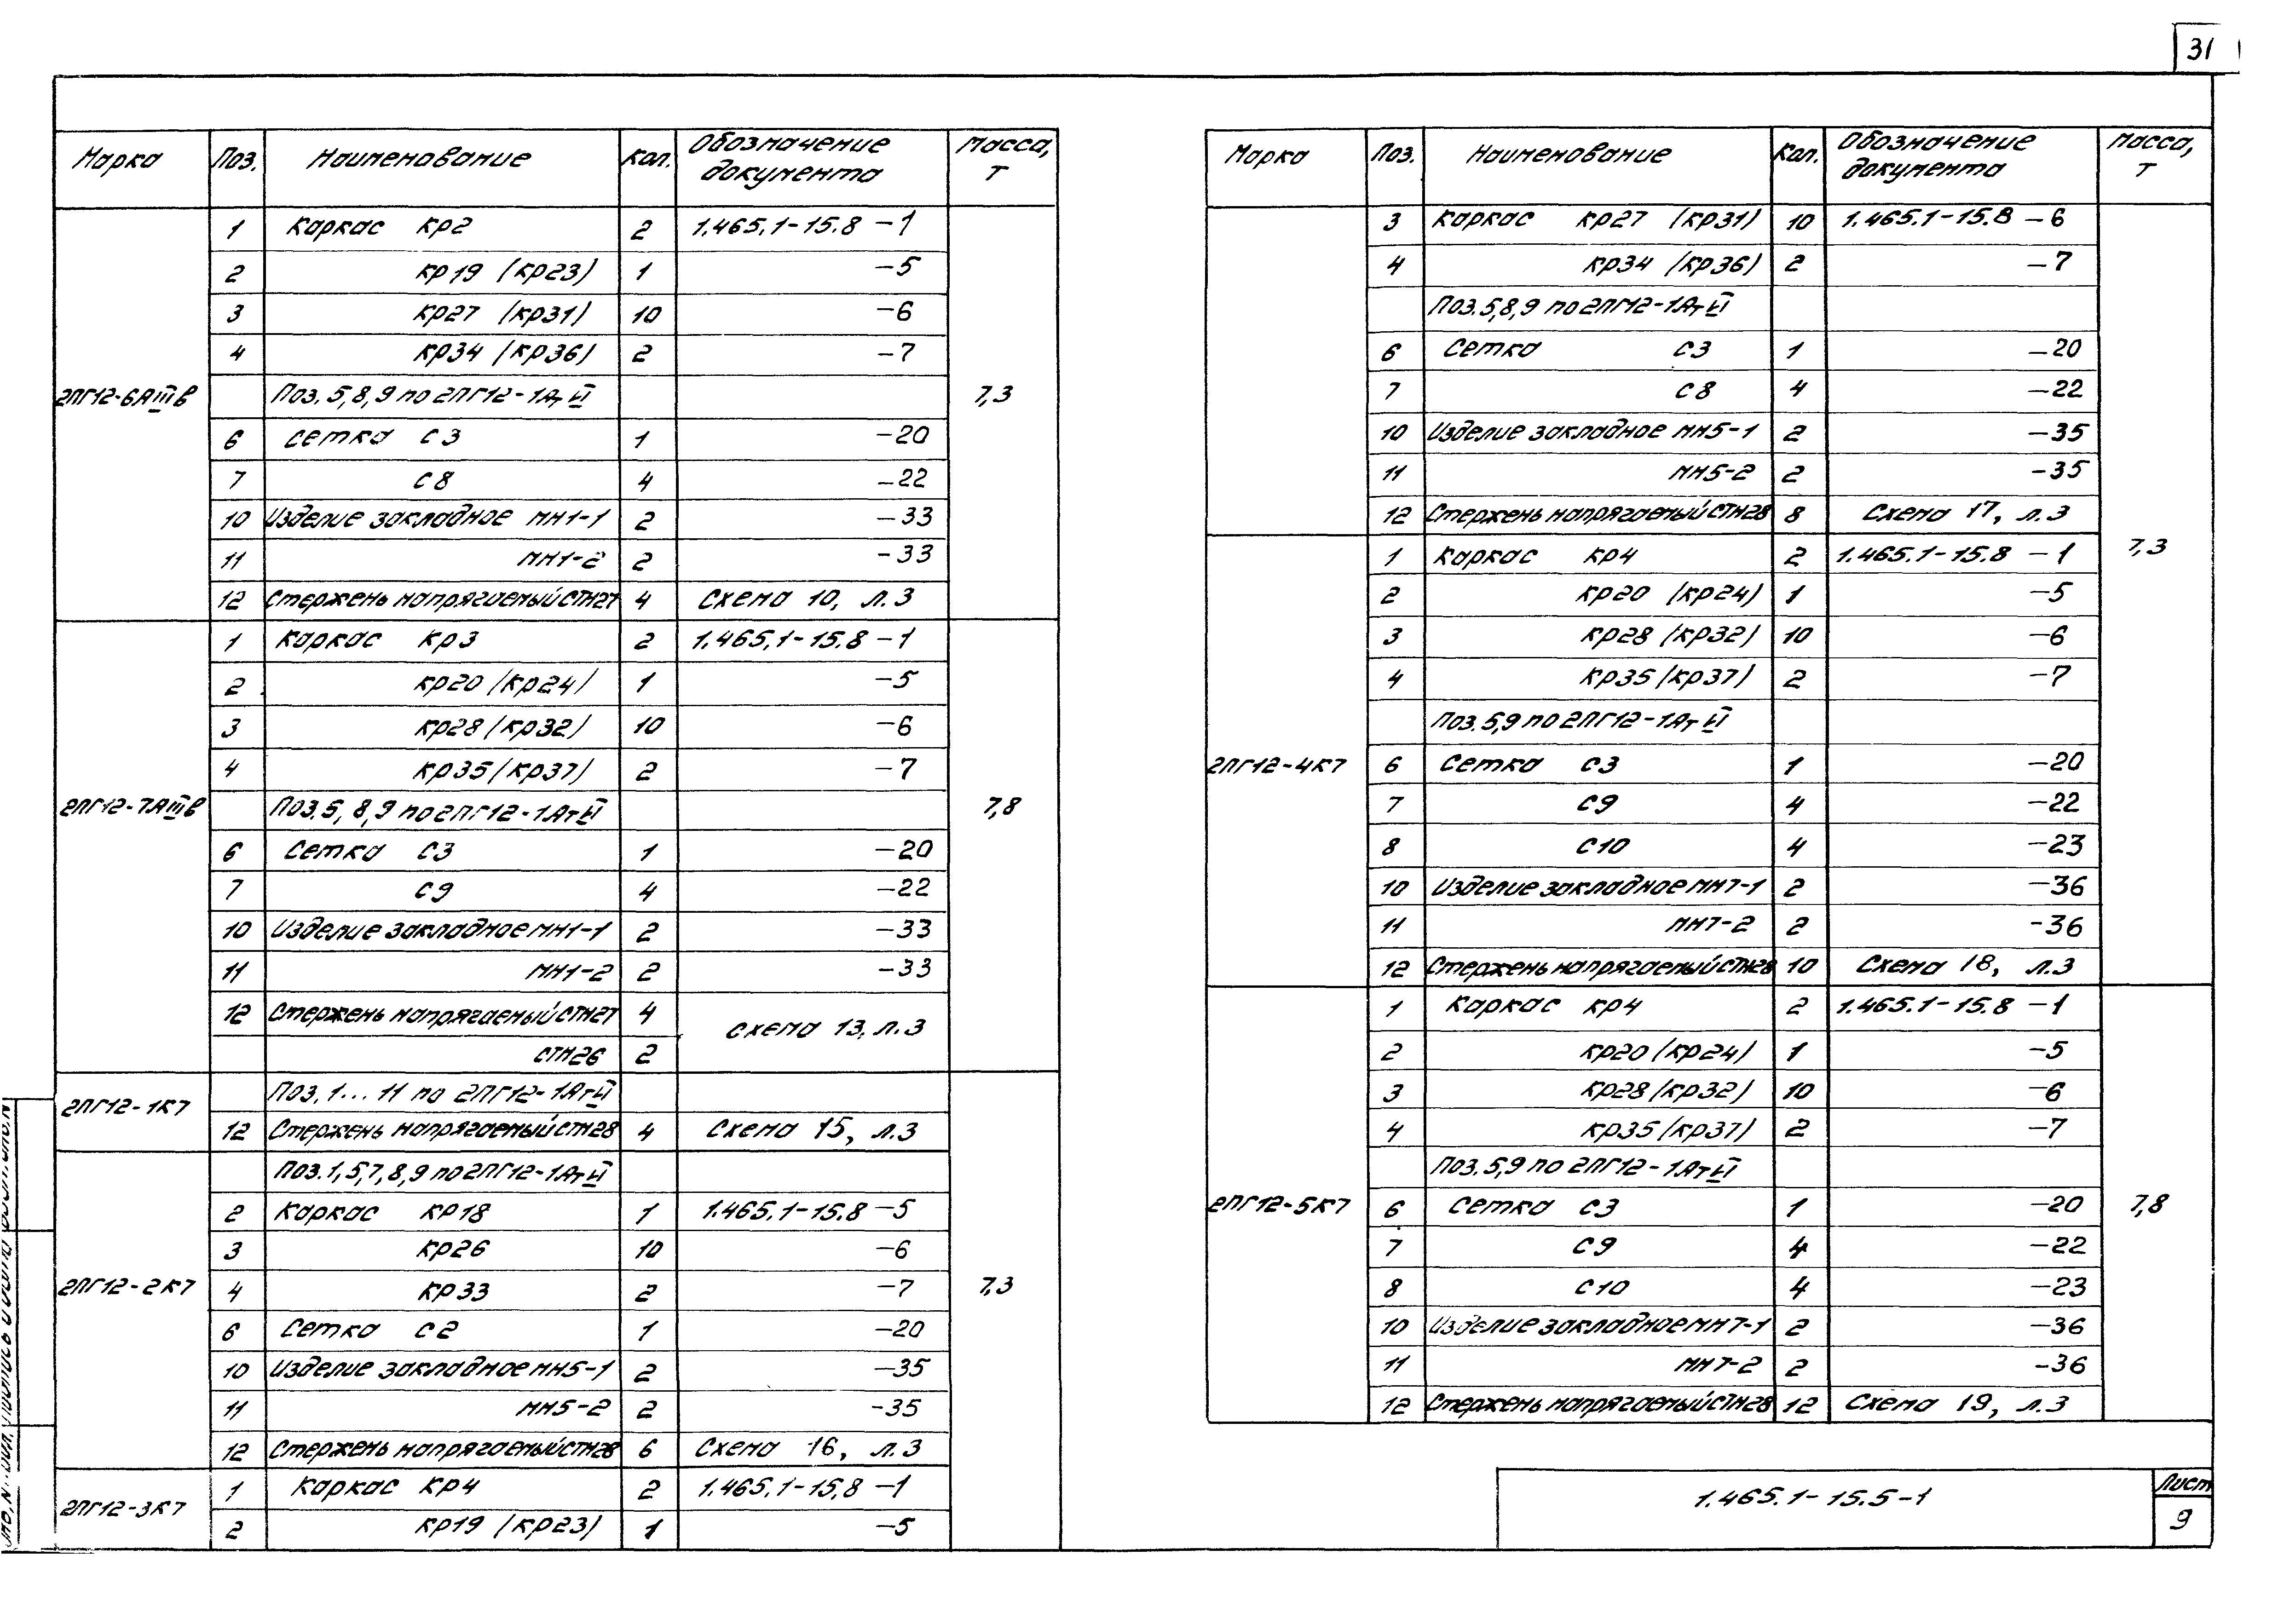 31
Марка Поз. Наименование Кол. Обозначение документа Масса, т
2ПГ12-6АIIIв 7,3
1 Каркас Кр2 2 1.465.1-15.8 -1
2 Кр19 (Кр23) 1 -5
3 Кр27 (Кр31) 10 -6
4 Кр34 (Кр36) 2 -7
Поз. 5,8,9 по 2ПГ12-1АтVI
6 Сетка С3 1 -20
7 С8 4 -22
10 Изделие закладное МН1-1 2 -33
11 МН1-2 2 -33
12 Стержень напрягаемый СТН27 4 Схема 10, л.3
2ПГ12-7АIIIв 7,8
1 Каркас Кр3 2 1.465.1-15.8 -1
2 Кр20 (Кр24) 1 -5
3 Кр28 (Кр32) 10 -6
4 Кр35 (Кр37) 2 -7
Поз. 5, 8, 9 по 2ПГ12-1АтVI
6 Сетка С3 1 -20
7 С9 4 -22
10 Изделие закладное МН1-1 2 -33
11 МН1-2 2 -33
12 Стержень напрягаемый СТН27 4 Схема 13, л.3
СТН26 2
2ПГ12-1К7 7,3
Поз. 1... 11 по 2ПГ12-1АтVI
12 Стержень напрягаемый СТН28 4 Схема 15, л.3
2ПГ12-2К7
Поз. 1,5,7,8,9 по 2ПГ12-1АтVI
2 Каркас Кр18 1 1.465.1-15.8 -5
3 Кр26 10 -6
4 Кр33 2 -7
6 Сетка С2 1 -20
10 Изделие закладное МН5-1 2 -35
11 МН5-2 2 -35
12 Стержень напрягаемый СТН28 6 Схема 16, л.3
2ПГ12-3К7
1 Каркас Кр4 2 1.465.1-15.8 -1
2 Кр19 (Кр23) 1 -5
Марка Поз. Наименование Кол. Обозначение документа Масса, т
3 Каркас Кр27 (Кр31) 10 1.465.1-15.8 -6
4 Кр34 (Кр36) 2 -7
Поз. 5,8,9 по 2ПГ12-1АтVI
6 Сетка С3 1 -20
7 С8 4 -22
10 Изделие закладное МН5-1 2 -35
11 МН5-2 2 -35
12 Стержень напрягаемый СТН28 8 Схема 17, л.3
7,3
2ПГ12-4К7
1 Каркас Кр4 2 1.465.1-15.8 -1
2 Кр20 (Кр24) 1 -5
3 Кр28 (Кр32) 10 -6
4 Кр35 (Кр37) 2 -7
Поз. 5,9 по 2ПГ12-1АтVI
6 Сетка С3 1 -20
7 С9 4 -22
8 С10 4 -23
10 Изделие закладное МН7-1 2 -36
11 МН7-2 2 -36
12 Стержень напрягаемый СТН28 10 Схема 18, л.3
2ПГ12-5К7 7,8
1 Каркас Кр4 2 1.465.1-15.8 -1
2 Кр20 (Кр24) 1 -5
3 Кр28 (Кр32) 10 -6
4 Кр35 (Кр37) 2 -7
Поз. 5,9 по 2ПГ12-1АтVI
6 Сетка С3 1 -20
7 С9 4 -22
8 С10 4 -23
10 Изделие закладное МН7-1 2 -36
11 МН7-2 2 -36
12 Стержень напрягаемый СТН28 12 Схема 19, л.3
1.465.1-15.5-1
Лист
9